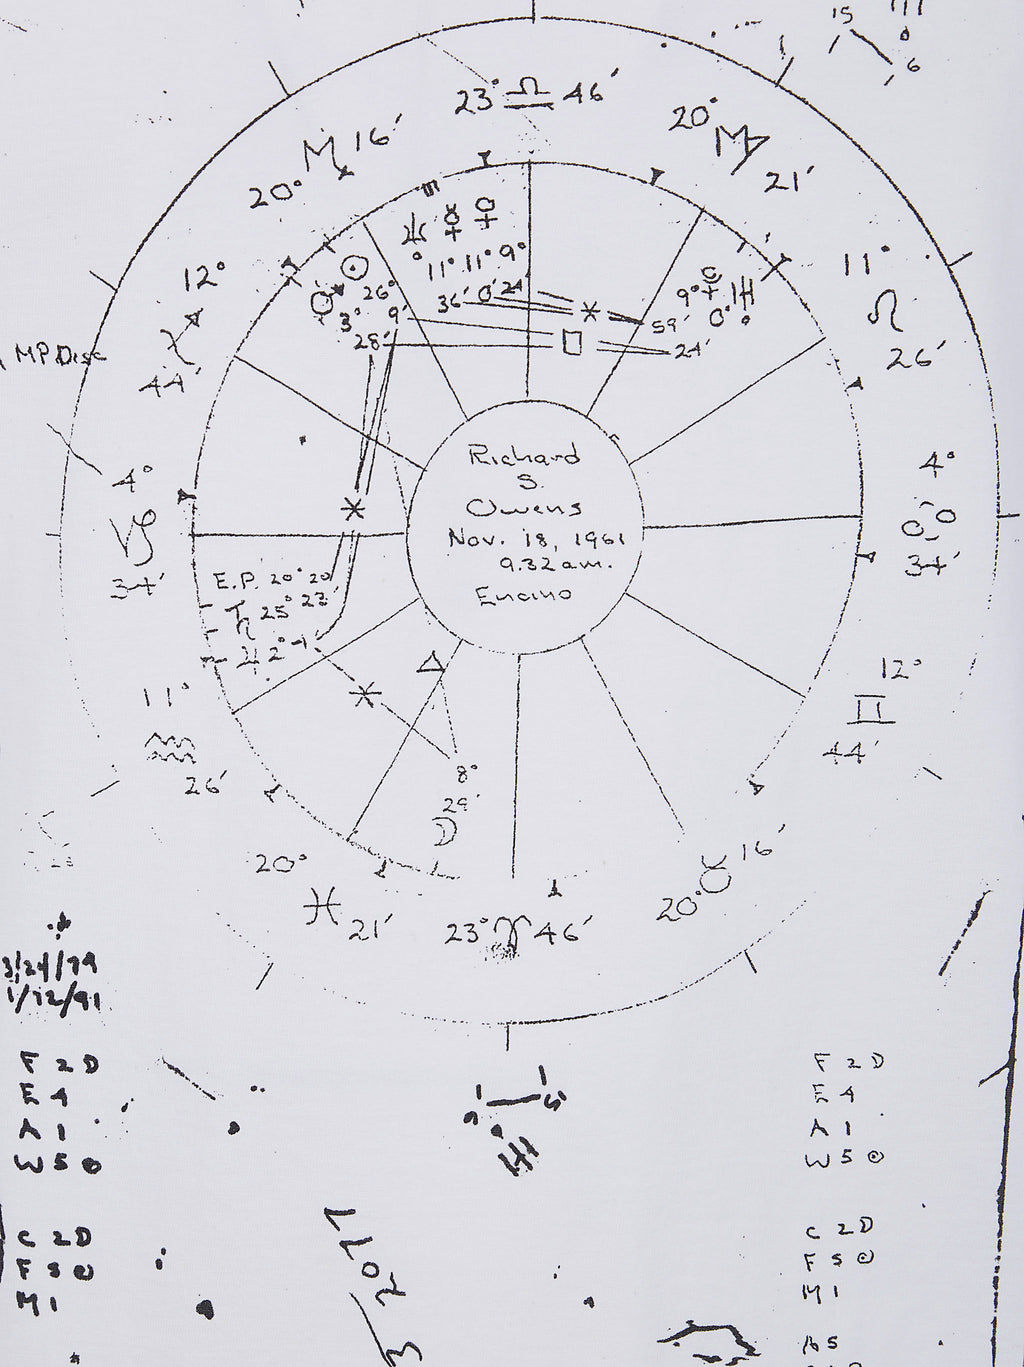 15
6
23° ♎ 46′
20° ♍ 21′
♏ 16′
20°
12°
♐
44′
11°
♌
26′
♆ ☿ ♀
11° 11° 9°
36′ 0′ 24′
☉
♂ 26°
3° 9′
28′
9°
59′ 0°
24′
MP Disc
4°
♑
34′
4°
♋
34′
Richard
S.
Owens
Nov. 18, 1961
9.32 a.m.
Encino
E.P. 20° 20′
♄ 25° 23′
♃ 2°
11°
♒
26′
12°
♊
44′
8°
29′
☽
20°
♓
21′
23° ♈ 46′
20° ♉ 16′
F 2 D
E 4
A 1
W 5 ☉
C 2 D
F 5 ☉
M 1
F 2 D
E 4
A 1
W 5 ☉
C 2 D
F 5 ☉
M 1